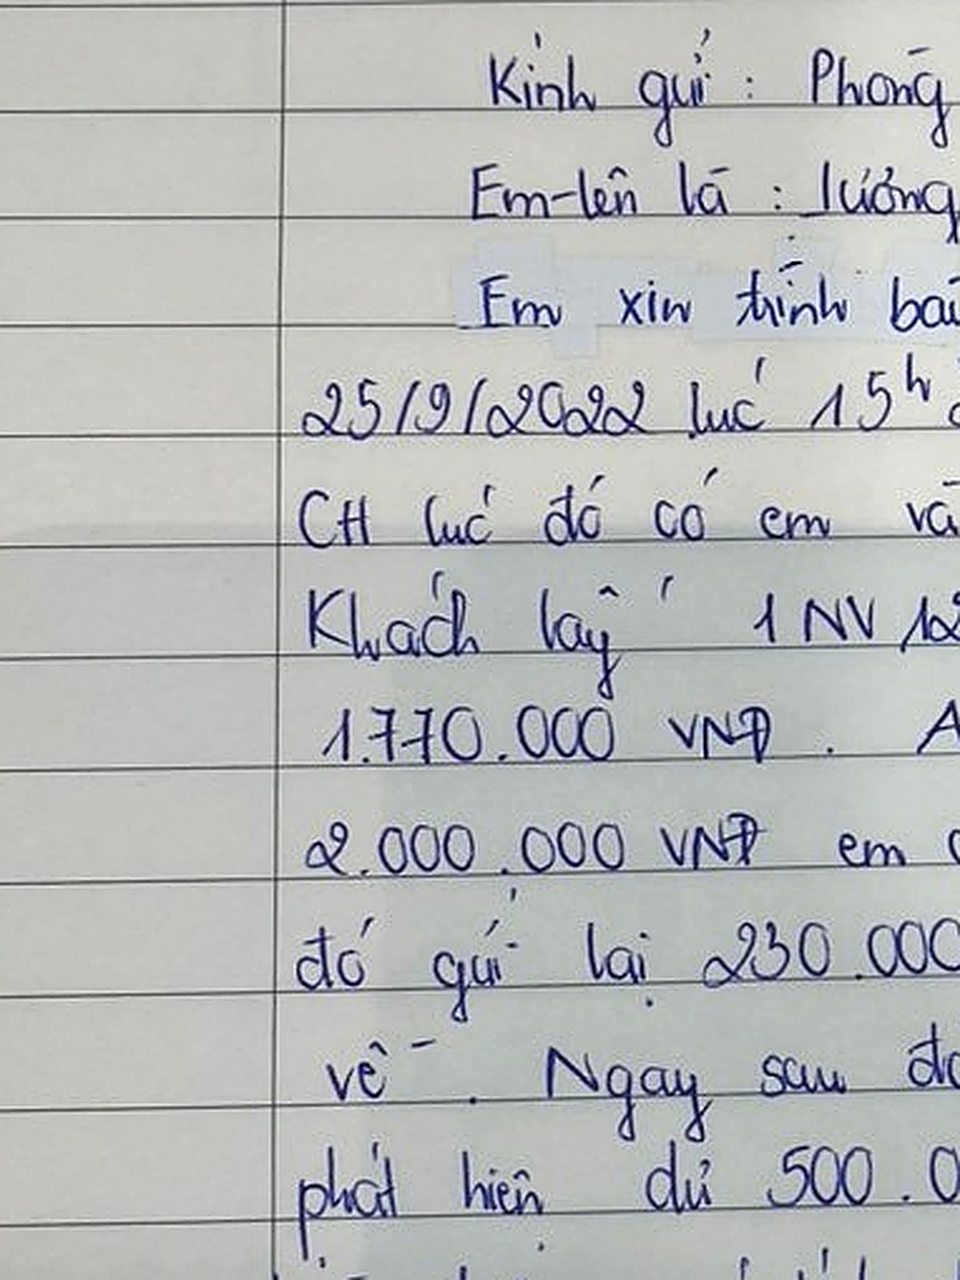 Kính gửi : Phòng
Em tên là : Lương
Em xin trình bà
25/9/2022 lúc 15h
CH lúc đó có em và
Khách lấy 1 NV 12
1.770.000 VNĐ . A
2.000.000 VNĐ em
đó gửi lại 230.000
về . Ngay sau đó
phát hiện dư 500.0